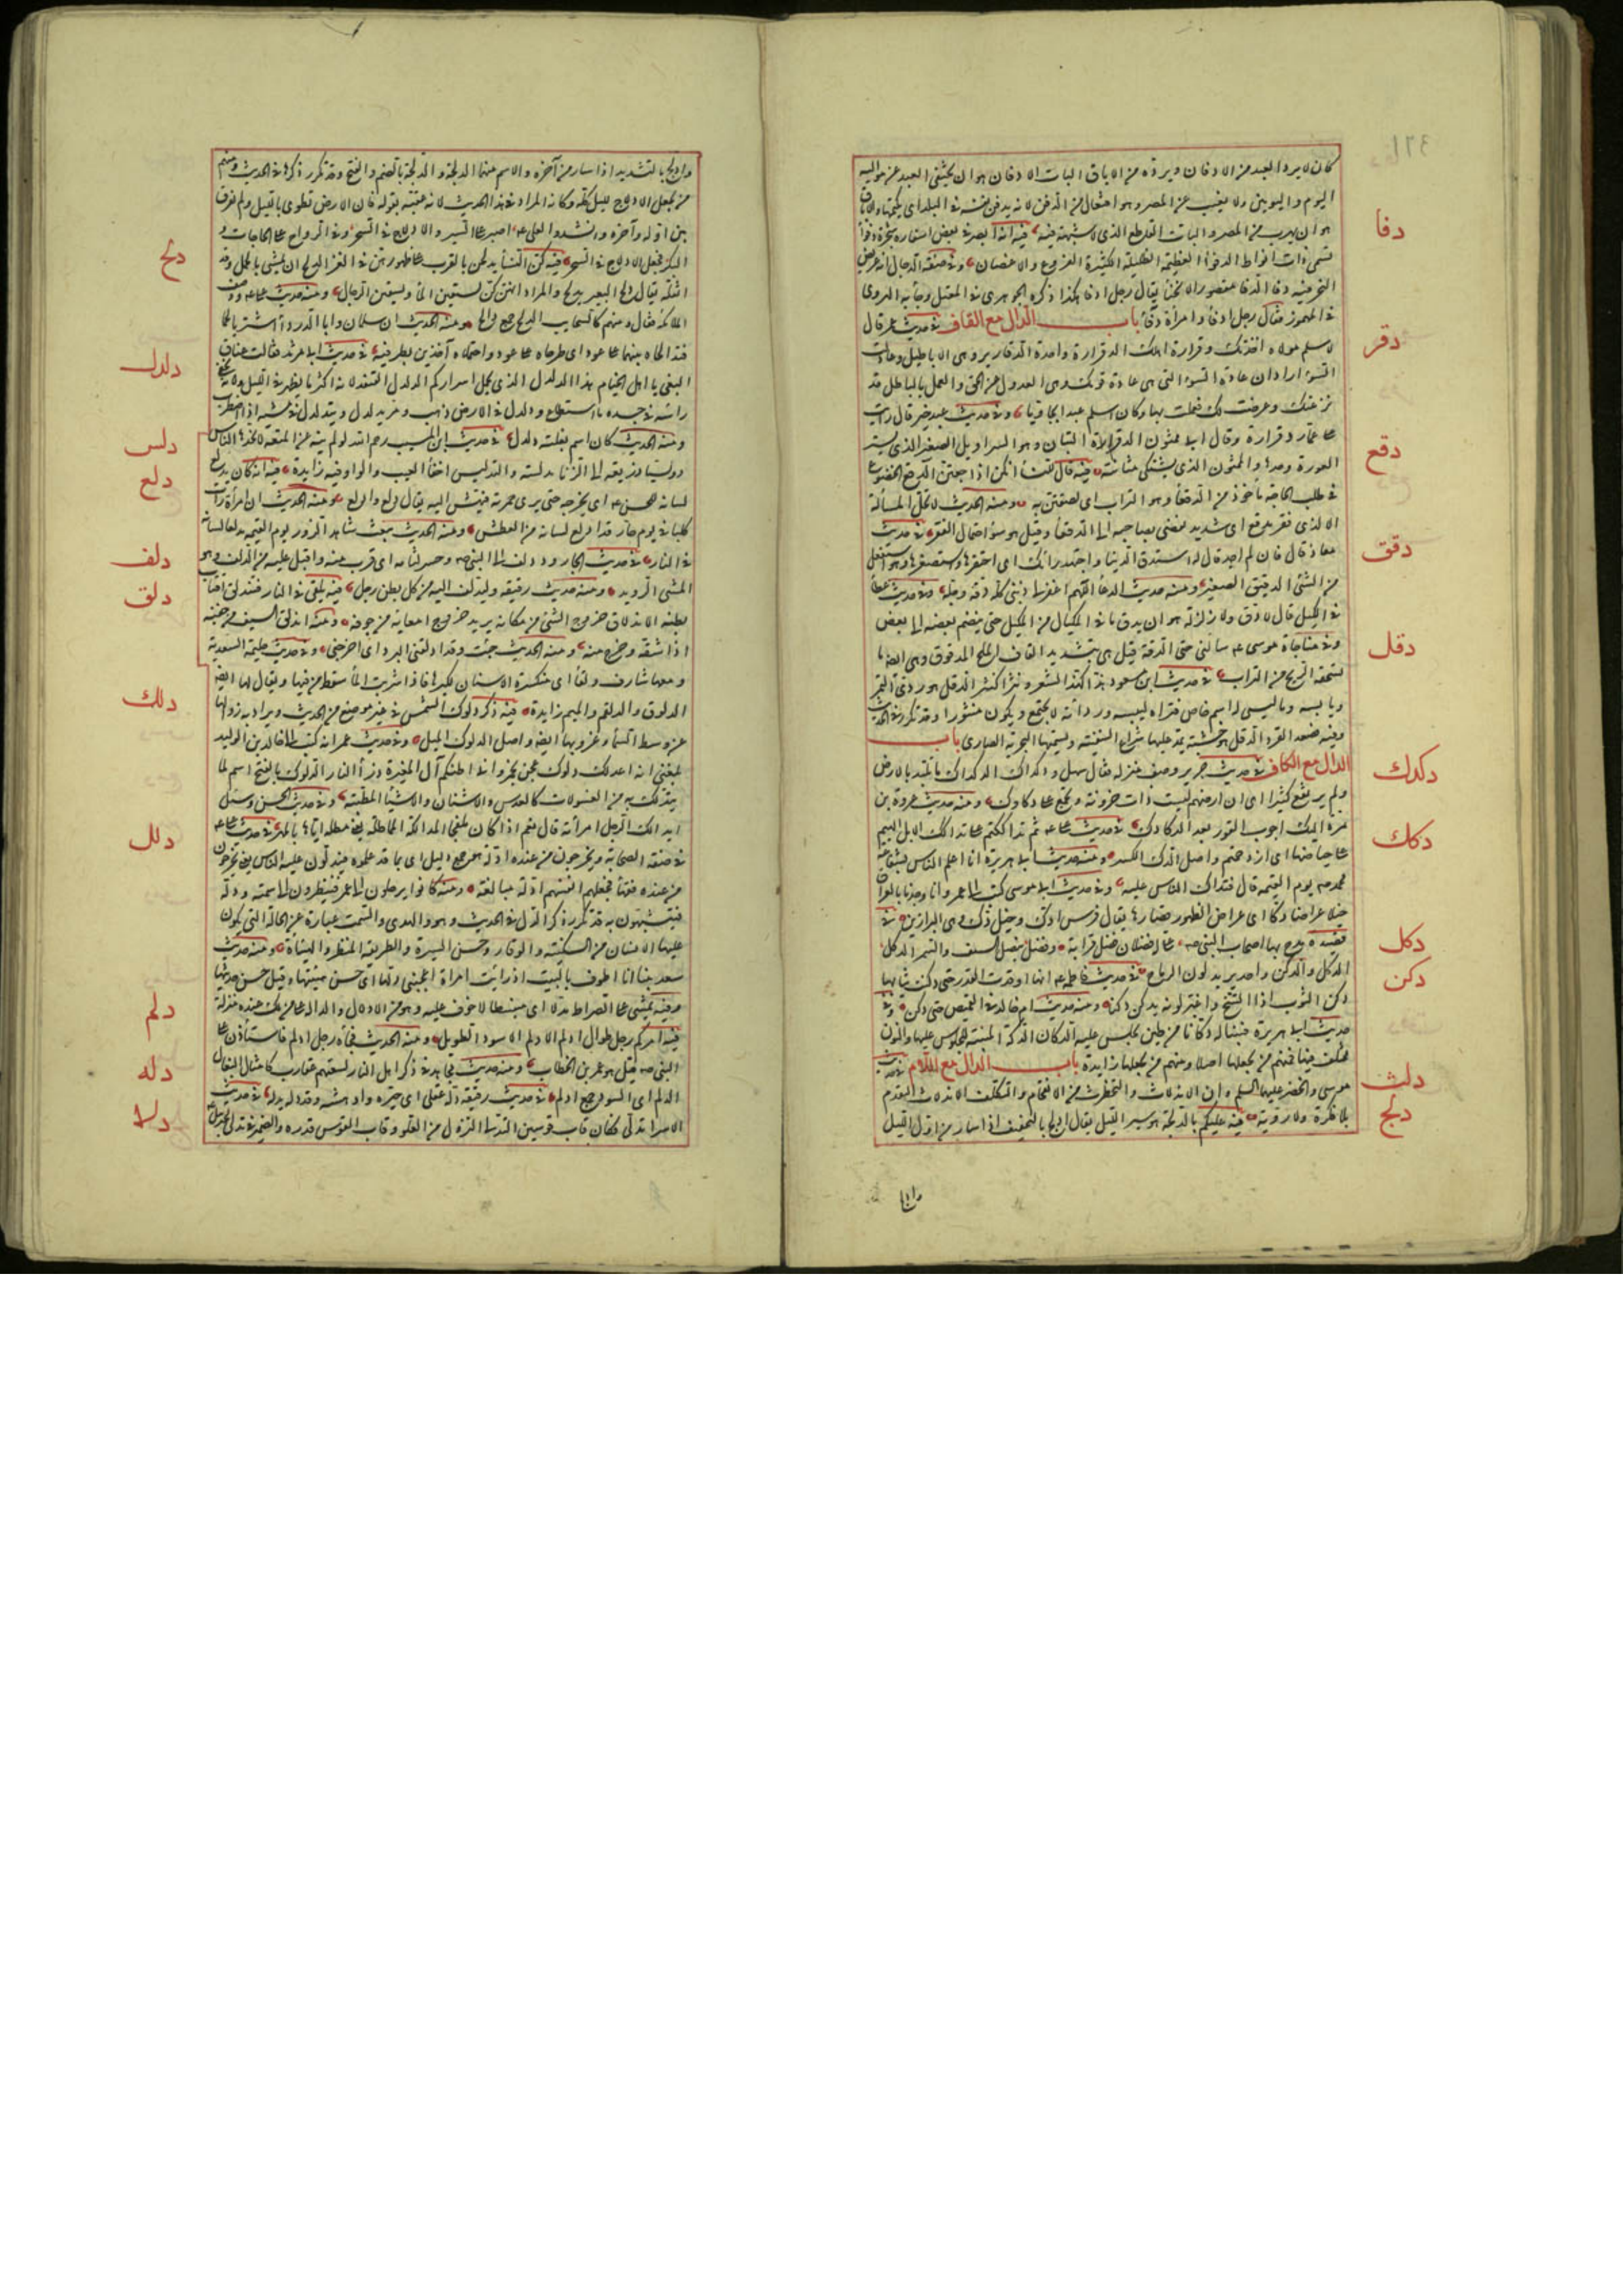 كان لا يرد العبد من الادفان ويرده من الاباق البات الادفان هو ان يختفى العبد عن مواليه
اليوم واليومين ولا يغيب عن المصر وهو افتعال من الدفن لانه يدفن نفسه فى البلد اى يكتمها والاباق
دفا
هو ان يهرب من المصر والبات القاطع الذى لا شبهة فيه فيه انه ابصر فى بعض اسفاره شجرة دفواء
تسمى ذات انواط الدفواء العظيمة الظليلة الكثيرة الفروع والاغصان وفى صفة الدجال انه عريض
النحر فيه دفا الدفا مقصور الانحناء يقال رجل ادفا هكذا ذكره الجوهرى فى المعتل وجاء به الهروى
فى المهموز فقال رجل ادفأ وامرأة دفآء باب الدال مع القاف فى حديث عمر قال
دقر
لاسلم مولاه اخذتك دقرارة اهلك الدقرارة واحدة الدقارير وهى الاباطيل وعادات
السوء اراد ان عادة السوء التى هى عادة قومك وهى العدول عن الحق والعمل بالباطل قد
نزعتك وعرضت لك فعملت بها وكان اسلم عبدا بجاويا وفى حديث عبد خير قال رايت
على عمار دقرارة وقال انى ممثون الدقرارة التبان وهو السراويل الصغير الذى يستر
دقع
العورة وحدها والممثون الذى يشتكى مثانته فيه قال للنساء انكن اذا جعتن دقعتن الدقع الخضوع
فى طلب الحاجة مأخوذ من الدقعاء وهو التراب اى لصقتن به ومنه الحديث لا تحل المسألة
الا لذى فقر مدقع اى شديد يفضى بصاحبه الى الدقعاء وقيل هو سوء احتمال الفقر فى حديث
دقق
معاذ قال فان لم اجد قال له استدق الدنيا واجتهد رأيك اى احتقرها واستصغرها وهو استفعل
من الشئ الدقيق الصغير ومنه حديث الدعاء اللهم اغفر لى ذنبى كله دقه وجله وفى حديث عطاء
فى الكيل قال لا دق ولا زلزلة هو ان يدق ما فى المكيال من المكيل حتى ينضم بعضه الى بعض
دقل
وفى مناجاة موسى سالنى حتى الدقة قيل هى بتشديد القاف الملح المدقوق وهى ايضا ما
تسحقه الريح من التراب فى حديث ابن مسعود هذا كهذ الشعر ونثرا كنثر الدقل هو ردئ التمر
ويابسه وما ليس له اسم خاص فتراه ليبسه ورداءته لا يجتمع ويكون منثورا وقد تكرر فى الحديث
وفيه فصعد القرد الدقل هو خشبة يمد عليها شراع السفينة وتسميها البحرية الصارى باب
دكدك
الدال مع الكاف فى حديث جرير ووصف منزله فقال سهل ودكداك الدكداك ما تلبد بالارض
ولم يرتفع كثيرا اى ان ارضهم ليست ذات حزونة ويجمع على دكادك ومنه حديث عمرو بن
دكك
مرة اليك اجوب القور بعد الدكادك فى حديث على ثم تداككتم على تداكك الابل الهيم
على حياضها اى ازدحمتم واصل الدك الكسر ومنه حديث ابى هريرة انا اعلم الناس بشفاعة
محمد يوم القيمة قال فتداك الناس عليه وفى حديث ابى موسى كتب الى عمر وانا وجدنا بالعراق
خيلا عراضا دكا اى عراض الظهور قصارها يقال فرس ادك وخيل دك وهى البراذين فى
دكل
قصيدة مدح بها اصحاب النبى على له فضلان فضل قرابة وفضل بنصل السيف والسمر الدكل
دكن
الدكل والدكن واحد يريد لون الرماح فى حديث فاطمه انها اوقدت القدر حتى دكنت ثيابها
دكن الثوب اذا اتسخ واغبر لونه يدكن دكنا ومنه حديث ام خالد فى القميص حتى دكن وفى
حديث ابى هريرة فبنينا له دكانا من طين يجلس عليه الدكان الدكة المبنية للجلوس عليها والنون
دلث
مختلف فيها فمنهم من يجعلها اصلا ومنهم من يجعلها زايدة باب الدال مع اللام فى حديث
موسى والخضر عليهما السلم وان الاندلاث والتخطرف من الانقحام والتكلف الاندلاث التقدم
دلج
بلا فكرة ولا روية فيه عليكم بالدلجة هو سير الليل يقال ادلج بالتخفيف اذا سار من اول الليل
وادلج
وادلج بالتشديد اذا سار من آخره والاسم منهما الدلجة والدلجة بالضم والفتح وقد تكرر ذكرها فى الحديث ومنهم
من يجعل الادلاج لليل كله وكانه المراد فى هذا الحديث لانه عقبه بقوله فان الارض تطوى بالليل ولم يفرق
بين اوله وآخره وانشدوا لعلى اصبر على السير والادلاج فى السحر وفى الرواح على الحاجات و
دلح
البكر فجعل الادلاج فى السحر فيه كن النساء يدلحن بالقرب على ظهورهن فى الغزو الدلح ان يمشى بالحمل وقد
اثقله يقال دلح البعير يدلح والمراد انهن كن يستقين الماء ويسقين الرجال ومنه حديث على ووصف
الملائكة فقال ومنهم كالسحاب الدلح جمع دالح ومنه الحديث ان سلمان وابا الدرداء اشتريا لحما
دلدل
فتدالحاه بينهما على عود اى طرحاه على عود واحتملاه آخذين بطرفيه فى حديث ابى مرثد فقالت عناق
البغى يا اهل الخيام هذا الدلدل الذى يحمل اسراركم الدلدل القنفذ لانه اكثر ما يظهر فى الليل ولانه يخفى
راسه فى جسده ما استطاع ودلدل فى الارض ذهب ومر يدلدل ويتدلدل فى مشيه اذا اضطرب
دلس
ومنه الحديث كان اسم بغلته دلدل فى حديث ابن المسيب رحم الله لو لم ينه عن المتعة لاتخذها الناس
دلع
دولسيا اى ذريعة الى الزنا مدلسة والتدليس اخفاء العيب والواو فيه زايدة فيه انه كان يدلع
لسانه للحسن اى يخرجه حتى يرى حمرته فيهش اليه يقال دلع وادلع ومنه الحديث ان امرأة رات
كلبا فى يوم حار قد ادلع لسانه من العطش ومنه الحديث يبعث شاهد الزور يوم القيمه مدلعا لسانه
دلف
فى النار فى حديث الجارود دلف الى النبى وحسر لثامه اى قرب منه واقبل عليه من الدليف وهو
دلق
المشى الرويد ومنه حديث رقيقه وليدلف اليه من كل بطن رجل فيه يلقى فى النار فتندلق اقتاب
بطنه الاندلاق خروج الشئ من مكانه يريد خروج امعائه من جوفه ومنه اندلق السيف من جفنه
اذا شقه وخرج منه ومنه الحديث جئت وقد ادلقنى البرد اى اخرجنى وفى حديث حليمة السعدية
ومعها شارف دلقاء اى متكسرة الاسنان لكبرها فاذا شربت الماء سقط من فيها ويقال لها ايضا
دلك
الدلوق والدلقم والميم زايدة فيه ذكر دلوك الشمس فى غير موضع من الحديث ويراد به زوالها
عن وسط السماء وغروبها ايضا واصل الدلوك الميل وفى حديث عمر انه كتب الى خالد بن الوليد
بلغنى انه اعد لك دلوك عجن بخمر وانى اظنكم آل المغيرة ذرأ النار الدلوك بالفتح اسم لما
يتدلك به من الغسولات كالعدس والاشنان والاشياء المطيبة وفى حديث الحسن وسئل
دلل
ايدالك الرجل امرأته قال نعم اذا كان ملفجا المدالكة المماطلة يعنى مطله اياها بالمهر فى حديث على
فى صفة الصحابة ويخرجون من عنده ادلة هو جمع دليل اى بما قد علموه فيدلون عليه الناس يعنى يخرجون
من عنده فقهاء فجعلهم انفسهم ادلة مبالغة ومنه كانوا يرحلون الى عمر فينظرون الى سمته ودله
فيتشبهون به قد تكرر ذكر الدل فى الحديث وهو والهدى والسمت عبارة عن الحالة التى يكون
عليها الانسان من السكينة والوقار وحسن السيرة والطريقة المنظر والهيئة ومنه حديث
سعد بينا انا اطوف بالبيت اذ رايت امراة اعجبنى دلها اى حسن هيئتها وقيل حسن حديثها
دلم
وفيه يمشى على الصراط مدلا اى منبسطا لا خوف عليه وهو من الادلال والدالة على من لك عنده منزلة
فيه اميركم رجل طوال ادلم الادلم الاسود الطويل ومنه الحديث فجاء رجل ادلم فاستأذن على
دله
النبى قيل هو عمر بن الخطاب ومنه حديث مجاهد فى ذكر اهل النار لسعتهم عقارب كامثال البغال
الدلم اى السود جمع ادلم فى حديث رقيقة دله عقلى اى حيره وادهشه وقد دله يدله فى حديث
دلا
الاسراء تدلى فكان قاب قوسين التدلى النزول من العلو وقاب القوس قدره والضمير فى تدلى لجبريل